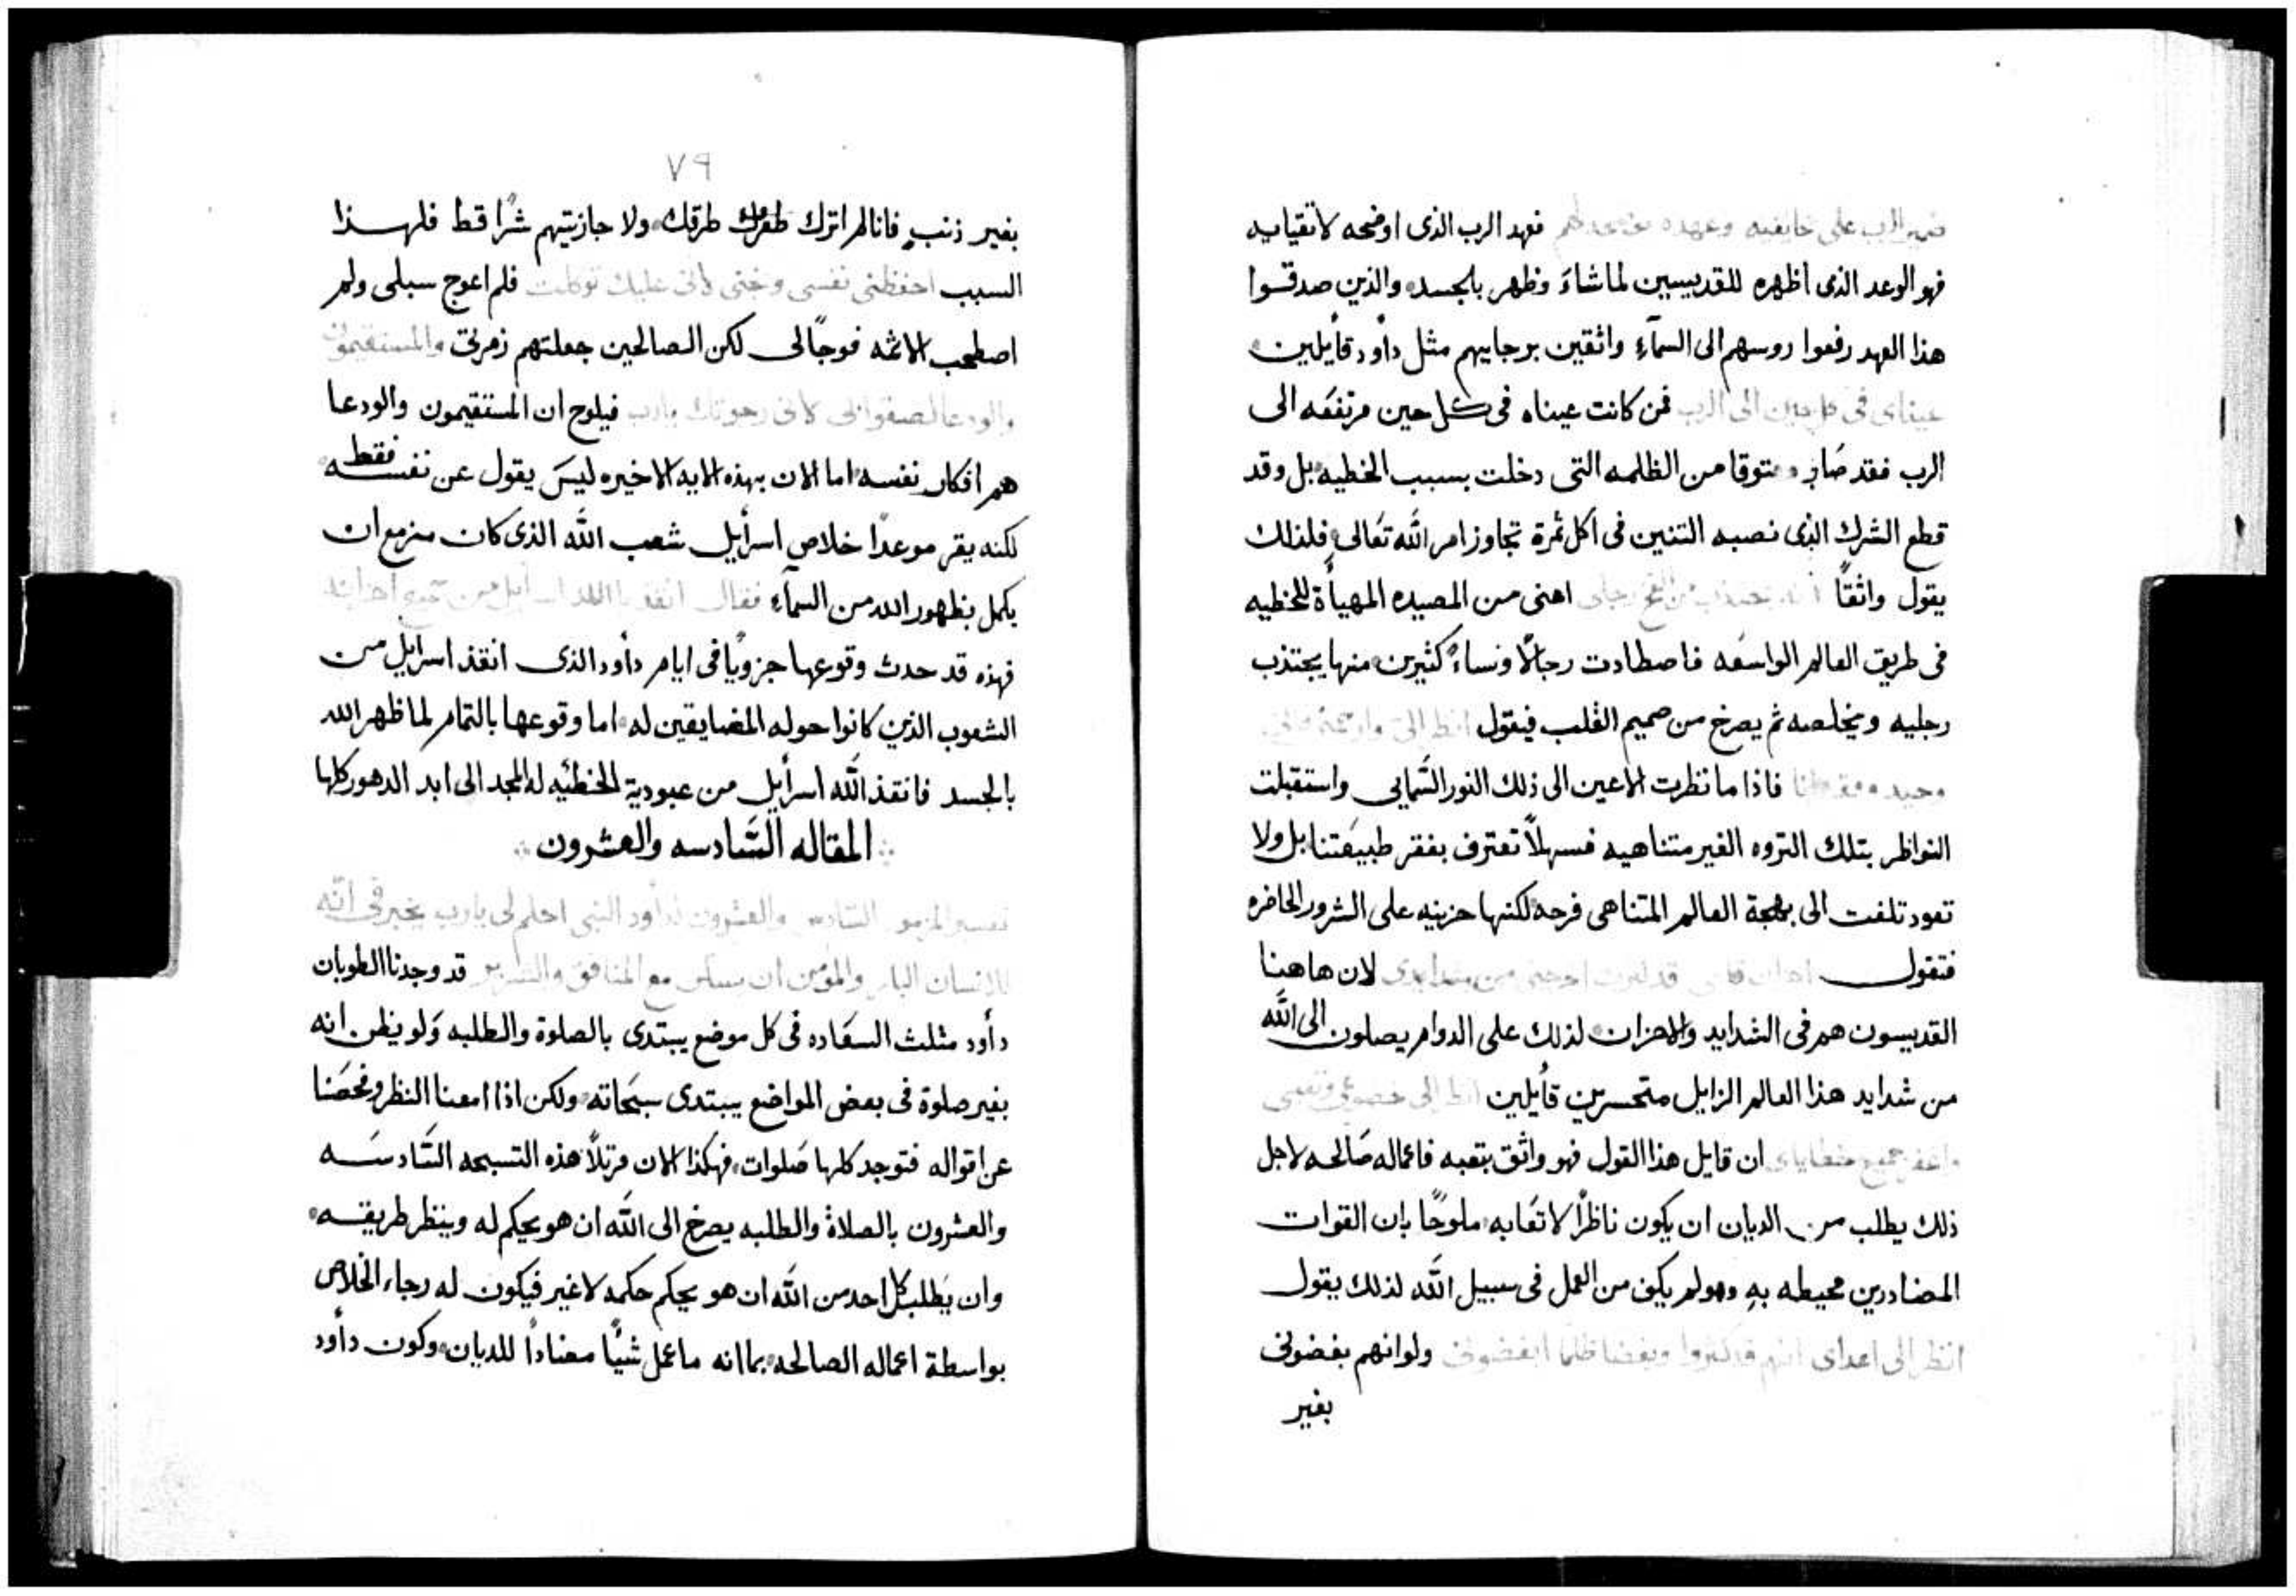 الرب على خايفيه وعهده يوضحه لهم فعهد الرب الذى اوضحه لاتقيايه
فهو الوعد الذى اظهره للقديسين لما شاءَ وظهر بالجسد والذين صدقوا
هذا العهد رفعوا روسهم الى السمآءِ واثقين برجاييهم مثل دأود قأيلين
عيناى فى كل حين الى الرب فمن كانت عيناه فى كل حين مرتفعه الى
الرب فقد صار معتوقا من الظلمه التى دخلت بسبب الخطيه بل وقد
قطع الشرك الذى نصبه التنين فى اكل ثمرة تجاوز امر الله تعالى فلذلك
يقول واثقًا انه يجتذب من الفخ رجلى اعنى من المصيده المهيأة للخطيه
فى طريق العالم الواسعه فاصطادت رجالًا ونساءً كثيرين منها يجتذب
رجليه ويخلصه ثم يصرخ من صميم القلب فيقول انظر الىّ وارحمنى فانى
وحيد وفقير انا فاذا ما نظرت الاعين الى ذلك النور السَّمايى واستقبلت
النواظر بتلك الثروه الغير متناهيه فسهلاً تعترف بفقر طبيعَتنا بل ولا
تعود تلفت الى بهجة العالم المتناهى فرحه لكنها حزينه على الشرور الحاضره
فتقول احزان قلبى قد كثرت اخرجنى من شدايدى لان هاهنا
القديسون هم فى الشدايد والاحزان لذلك على الدوام يصلون الى الله
من شدايد هذا العالم الزايل متحسرين قأيلين انظر الى خضوعى وتعبى
واغفر جميع خطاياى ان قايل هذا القول فهو واثق بتعبه فاعماله صَالحه لاجل
ذلك يطلب من الديان ان يكون ناظرًا لاتعَابه ملوحًا بان القوات
المضاددين محيطه بهِ وهو لم يكف من العمل فى سبيل الله لذلك يقول
انظر الى اعداى انهم قد كثروا وبغضا ظلما ابغضونى ولو انهم بغضونى
بغير
٩٧
بغير ذنبٍ فانا لم اترك طرقك ولا جازيتهم شرًا قط فلهذا
السبب احفظنى نفسى ونجنى لانى عليك توكلت فلم اعوج سبلى ولم
اصطحب الاثمه فوجًا لى لكن الصالحين جعلتهم زمرتى والمستقيمون
والودعا لصقوا بى لانى رجوتك يارب فيلوح ان المستقيمون والودعا
هم افكار نفسه اما الان بهذه الايه الاخيره ليسَ يقول عن نفسه فقط
لكنه يقر موعدًا خلاص اسرأيل شعب الله الذى كان مزمع ان
يكمل بظهور الله من السمآءِ فقال انقذ يا الله اسرأيل من جميع احزانه
فهذه قد حدث وقوعها جزويًا فى ايام دأود الذى انقذ اسرايل من
الشعوب الذين كانوا حوله المضايقين له اما وقوعها بالتمام لما ظهر الله
بالجسد فانقذ الله اسرأيل من عبودية الخطئيه له المجد الى ابد الدهور كلها
المقاله السَّادسه والعشرون
تفسير المزمور السَّادس والعشرون لدأود النبى احكم لى يارب يخبر فى انَّه
للانسان البار والمؤمن ان يسكن مع المنافق والشرير قد وجدنا الطوبان
دأود مثلث السعَاده فى كل موضع يبتدى بالصلوة والطلبه وَلو يظن انه
بغير صلوة فى بعض المواضع يبتدى سبحَاته ولكن اذا امعنا النظر وفحصَنا
عن اقواله فتوجد كلها صَلوات فهكذا الان مرتلاً هذه التسبحه السَّادسَه
والعشرون بالصلاة والطلبه يصرخ الى الله ان هو يحكم له وينظر طريقه
وان يَطلب كل احد من الله ان هو يحكم حكمه لاغير فيكون له رجاء الخلاص
بواسطة اعماله الصالحه بما انه ما عمل شئيًا مضاددًا للديان وكون دأود